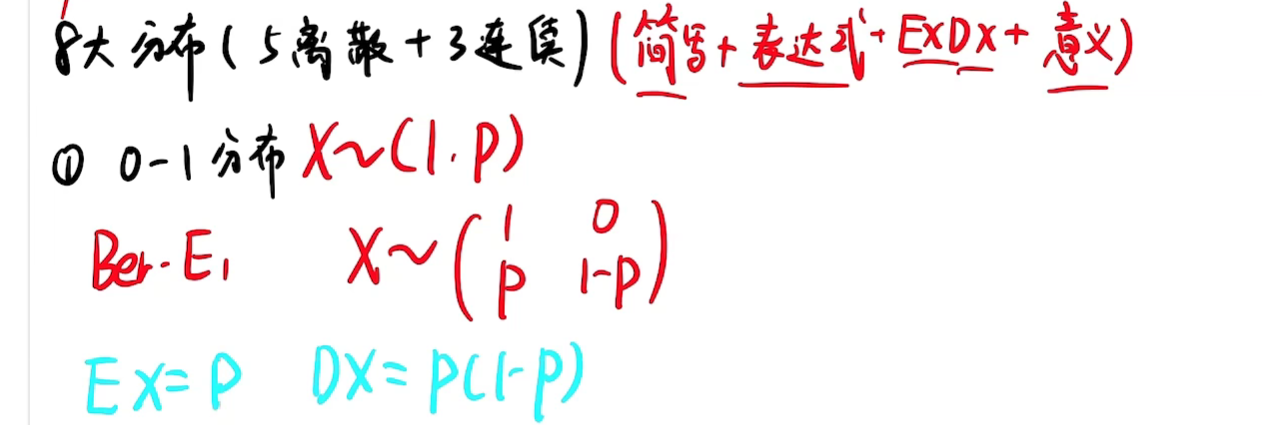 8大分布(5离散+3连续)(简写+表达式+EXDX+意义)
① 0-1分布 X~(1.p)
Ber.E₁ X~(1 0
p 1-p)
EX=P DX=P(1-P)